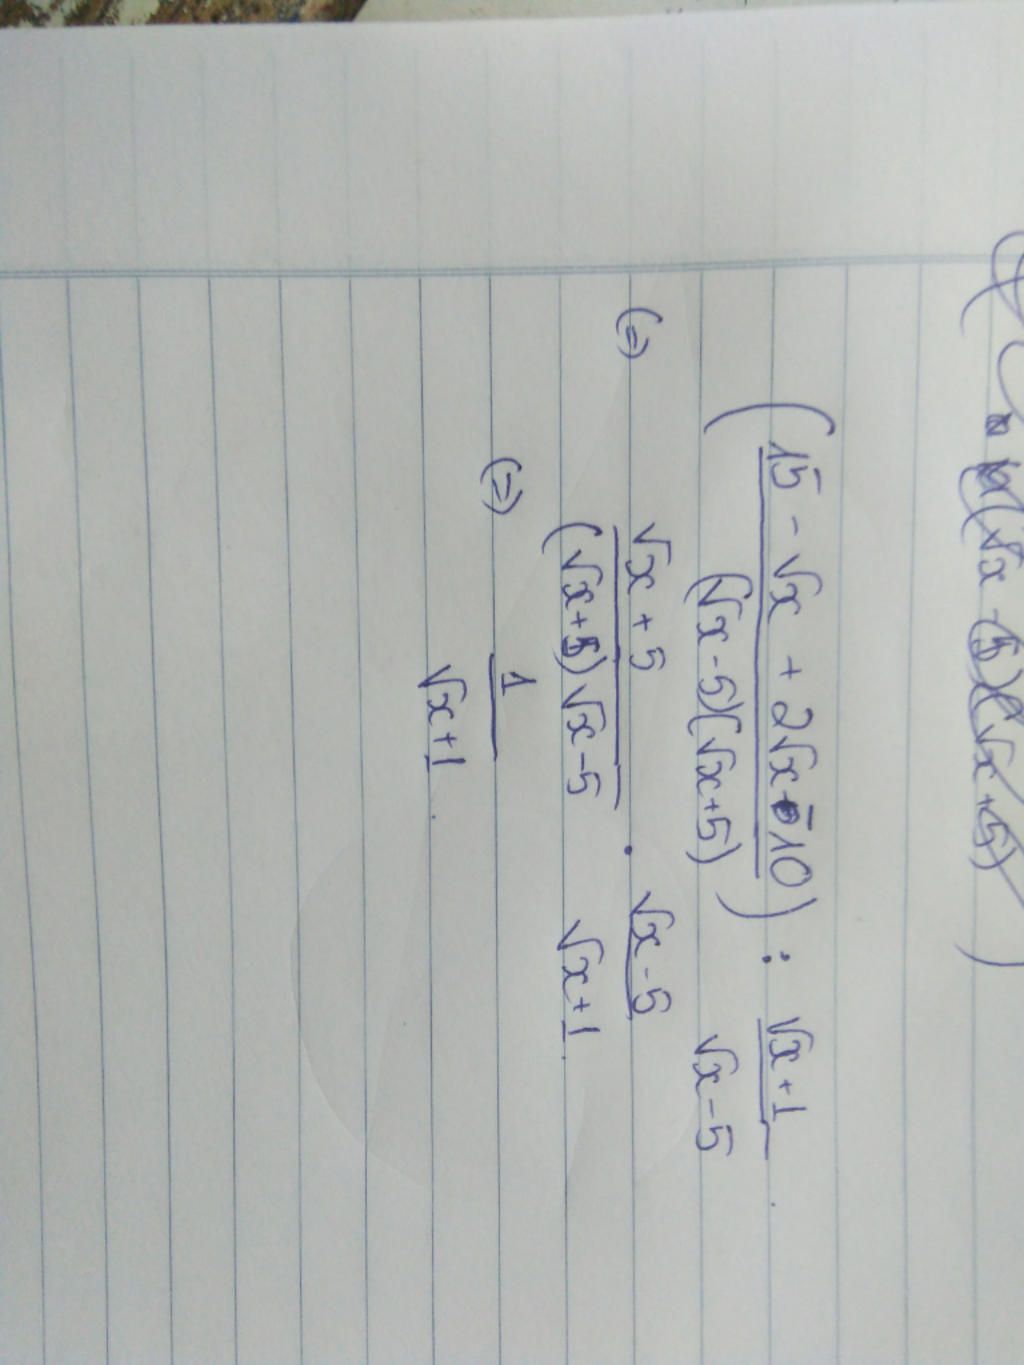 (√x - 5)(√x + 5)
( 15 - √x + 2√x - 10 / (√x - 5)(√x + 5) ) : √x + 1 / √x - 5
(=) √x + 5 / (√x + 5) √x - 5 . √x - 5 / √x + 1
(=) 1 / √x + 1 .